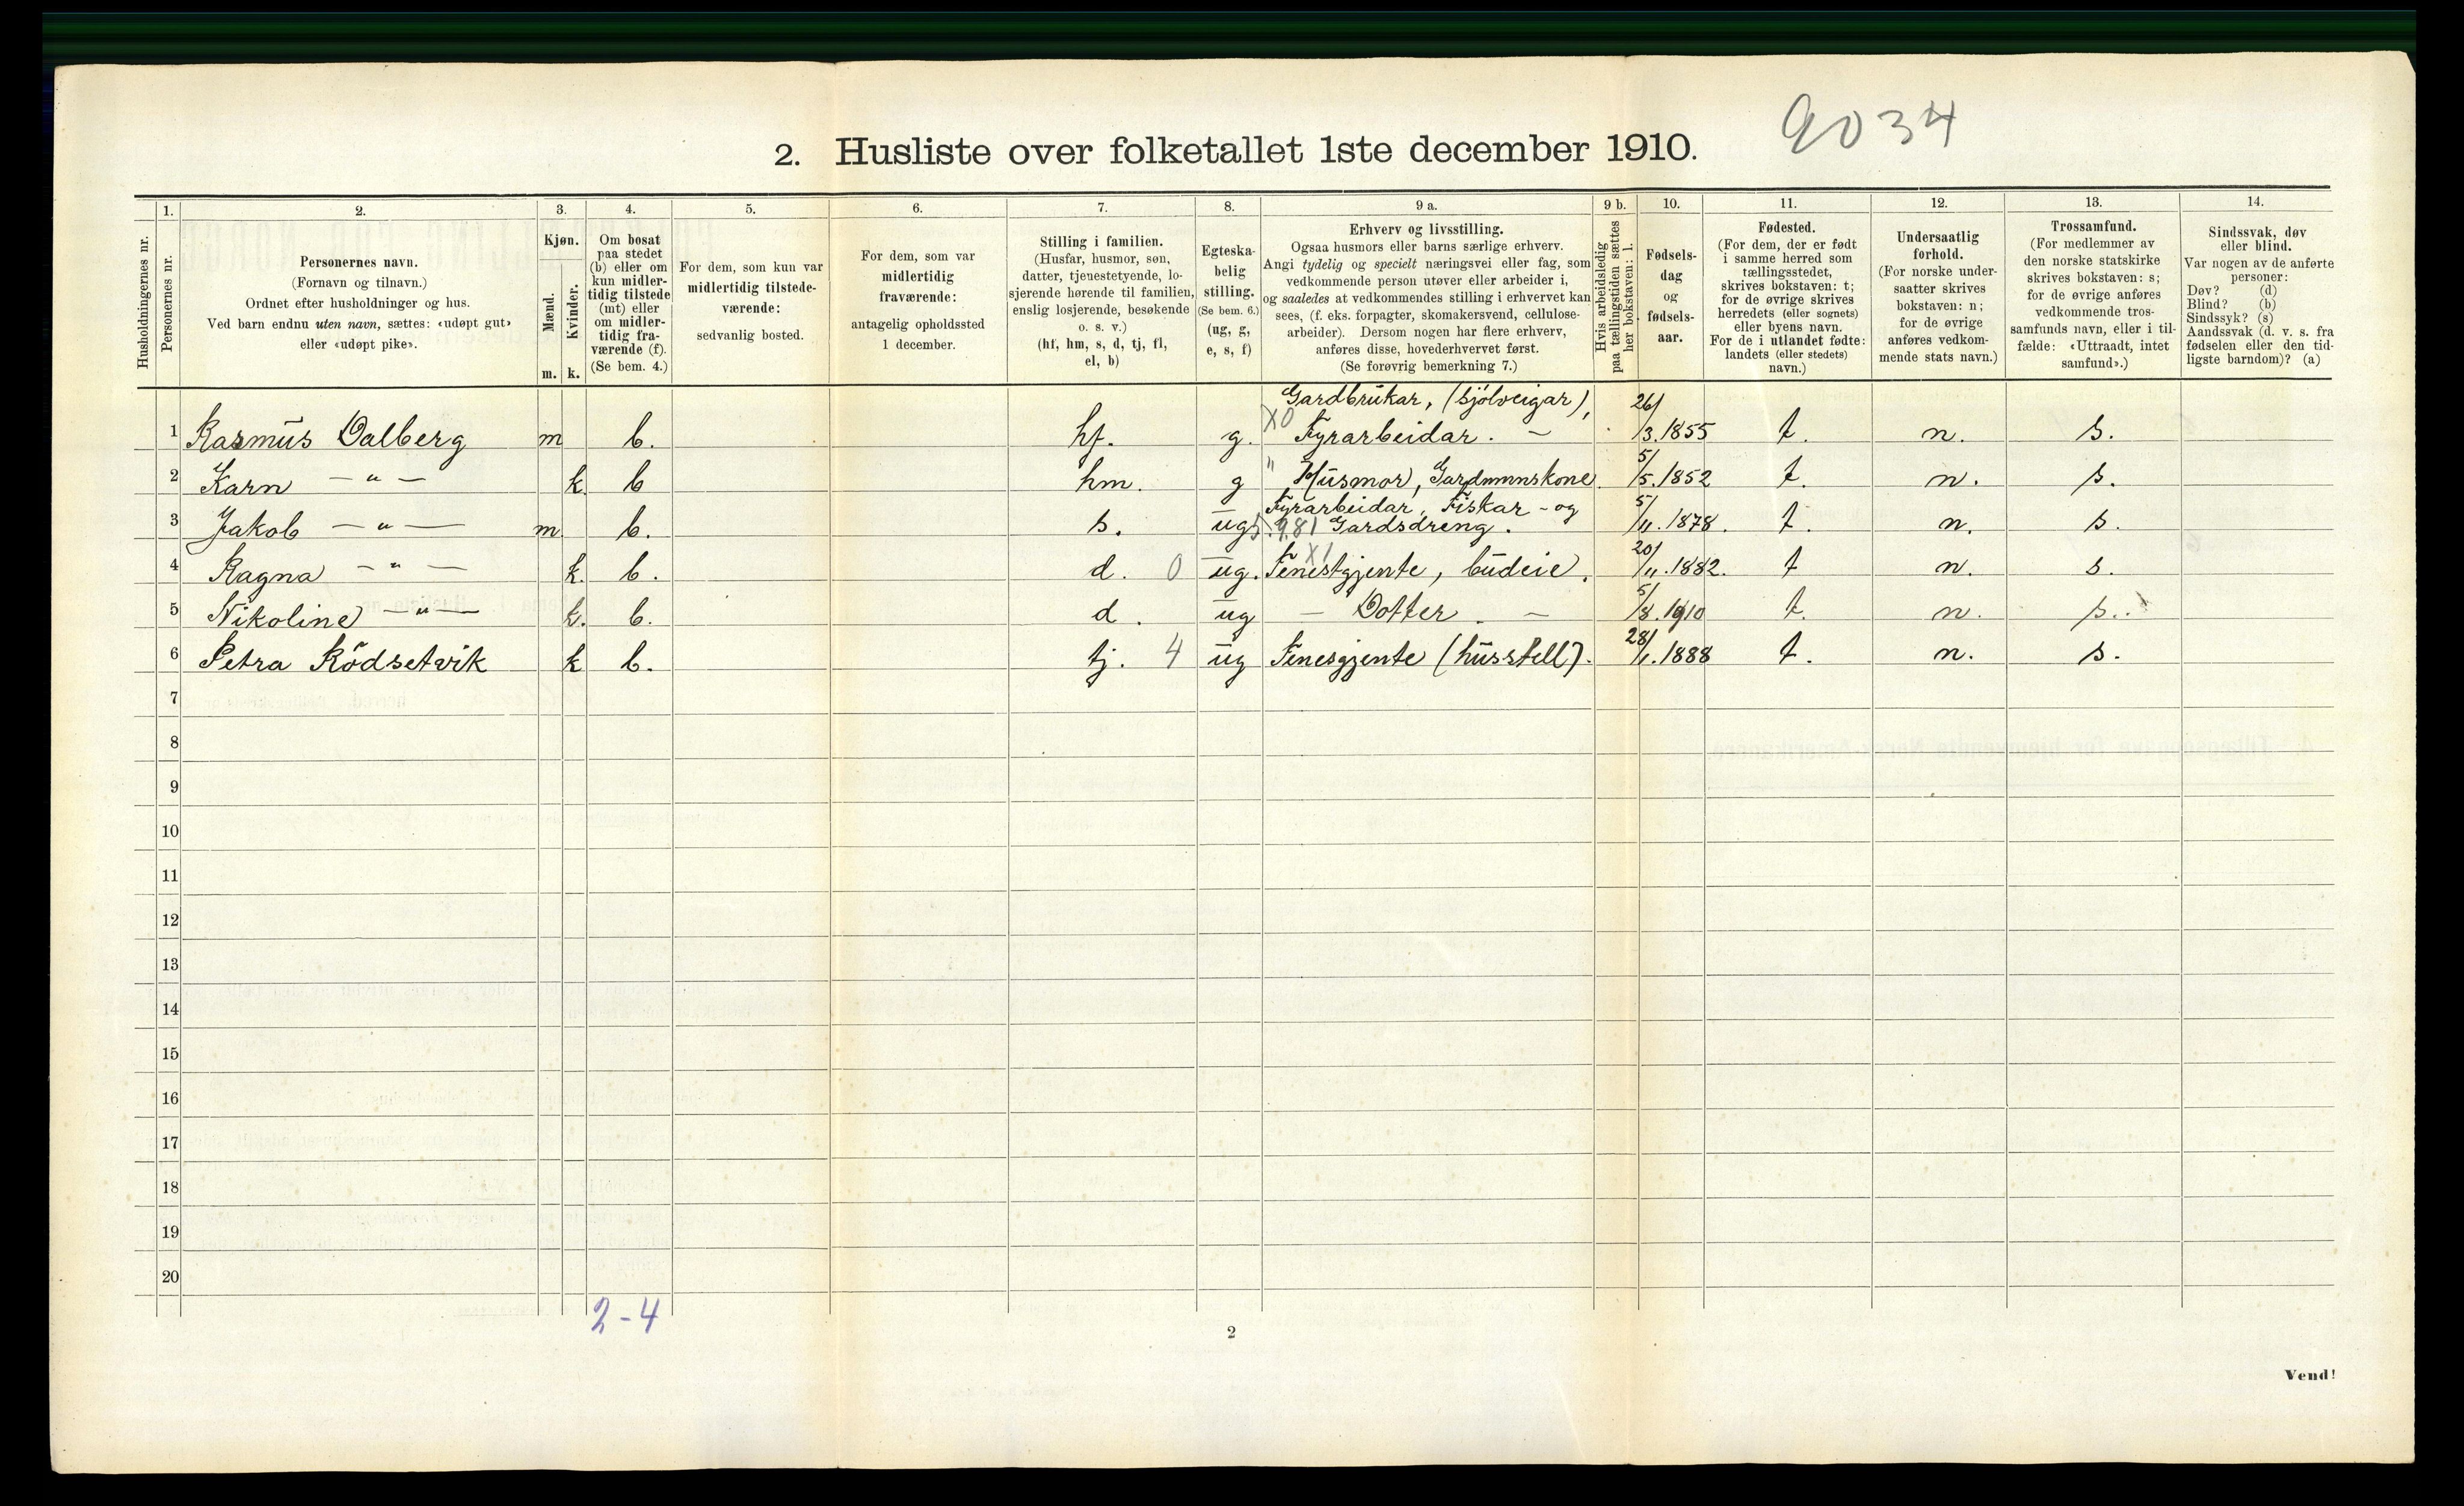 9034
2. Husliste over folketallet 1ste december 1910.
Husholdningernes nr.
1.
Personernes nr.
2.
Personernes navn.
(Fornavn og tilnavn.)
Ordnet efter husholdninger og hus.
Ved barn endnu uten navn, sættes: «udøpt gut»
eller «udøpt pike».
3.
Kjøn.
Mænd.
Kvinder.
m. k.
4.
Om bosat
paa stedet
(b) eller om
kun midler-
tidig tilstede
(mt) eller
om midler-
tidig fra-
værende (f).
(Se bem. 4.)
5.
For dem, som kun var
midlertidig tilstede-
værende:
sedvanlig bosted.
6.
For dem, som var
midlertidig
fraværende:
antagelig opholdssted
1 december.
7.
Stilling i familien.
(Husfar, husmor, søn,
datter, tjenestetyende, lo-
sjerende hørende til familien,
enslig losjerende, besøkende
o. s. v.)
(hf, hm, s, d, tj, fl,
el, b)
8.
Egteska-
belig
stilling.
(Se bem. 6.)
(ug, g,
e, s, f)
9 a.
Erhverv og livsstilling.
Ogsaa husmors eller barns særlige erhverv.
Angi tydelig og specielt næringsvei eller fag, som
vedkommende person utøver eller arbeider i,
og saaledes at vedkommendes stilling i erhvervet kan
sees, (f. eks. forpagter, skomakersvend, cellulose-
arbeider). Dersom nogen har flere erhverv,
anføres disse, hovederhvervet først.
(Se forøvrig bemerkning 7.)
9 b.
Hvis arbeidsledig
paa tællingstiden sættes
her bokstaven: l.
10.
Fødsels-
dag
og
fødsels-
aar.
11.
Fødested.
(For dem, der er født
i samme herred som
tællingsstedet,
skrives bokstaven: t;
for de øvrige skrives
herredets (eller sognets)
eller byens navn.
For de i utlandet fødte:
landets (eller stedets)
navn.)
12.
Undersaatlig
forhold.
(For norske under-
saatter skrives
bokstaven: n;
for de øvrige
anføres vedkom-
mende stats navn.)
13.
Trossamfund.
(For medlemmer av
den norske statskirke
skrives bokstaven: s;
for de øvrige anføres
vedkommende tros-
samfunds navn, eller i til-
fælde: «Uttraadt, intet
samfund».)
14.
Sindssvak, døv
eller blind.
Var nogen av de anførte
personer:
Døv? (d)
Blind? (b)
Sindssyk? (s)
Aandssvak (d. v. s. fra
fødselen eller den tid-
ligste barndom)? (a)
Gardbrukar, (sjølveigar),
1 Rasmus Dalberg m b. hf. g. X0 Fyrarbeidar. – 26/3. 1855 t. n. s.
2 Karn — " — k. b hm. g " Husmor, Gardmannskone. 5/5. 1852 t. n. s.
Fyrarbeidar, Fiskar - og
3 Jakob — " — m b. s. ug 981 Gardsdreng. 5/11. 1878. t. n. s.
4 Ragna — " — k. b. d. 0 ug. X1 Tenestgjente, budeie. 20/11. 1882. t n. s.
5 Nikoline — " — k. b. d. ug – Dotter. – 5/8. 1910 t. n. s.
6 Petra Rödsetvik k b. tj. 4 ug Tenesgjente (husstell). 28/1. 1888 t. n. s.
7
8
9
10
11
12
13
14
15
16
17
18
19
20
2-4
2
Vend!